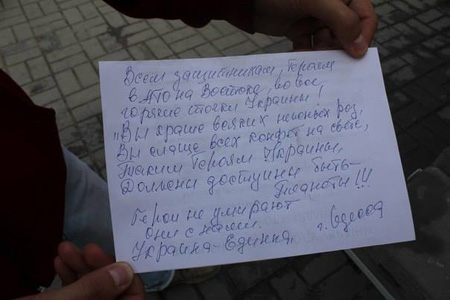 Всем защитникам, Героям
в АТО на Востоке, во все
горячие точки Украины,
"Вы краше всяких нежных роз,
Вы слаще всех конфет на свете,
Таким Героям Украины,
Должены доступны быть-
Герои не умирают
Они с нами.
Украина-Едина, г. Одесса